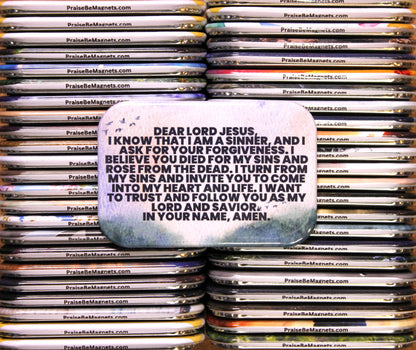 PraiseBeMagnets.com
PraiseBeMagnets.com
PraiseBeMagnets.com
PraiseBeMagnets.com
PraiseBeMagnets.com
PraiseBeMagnets.com
PraiseBeMagnets.com
PraiseBeMagnets.com
PraiseBeMagnets.com
PraiseBeMagnets.com
PraiseBeMagnets.com
PraiseBeMagnets.com
PraiseBeMagnets.com
PraiseBeMagnets.com
DEAR LORD JESUS,
I KNOW THAT I AM A SINNER, AND I
ASK FOR YOUR FORGIVENESS. I
BELIEVE YOU DIED FOR MY SINS AND
ROSE FROM THE DEAD. I TURN FROM
MY SINS AND INVITE YOU TO COME
INTO MY HEART AND LIFE. I WANT
TO TRUST AND FOLLOW YOU AS MY
LORD AND SAVIOR.
IN YOUR NAME, AMEN.
PraiseBeMagnets.com
PraiseBeMagnets.com
PraiseBeMagnets.com
PraiseBeMagnets.com
PraiseBeMagnets.com
PraiseBeMagnets.com
PraiseBeMagnets.com
PraiseBeMagnets.com
PraiseBeMagnets.com
PraiseBeMagnets.com
PraiseBeMagnets.com
PraiseBeMagnets.com
PraiseBeMagnets.com